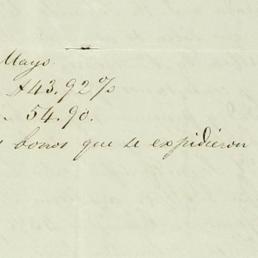 Mayo
$43.92%
54.90.
bonos que se expidieron